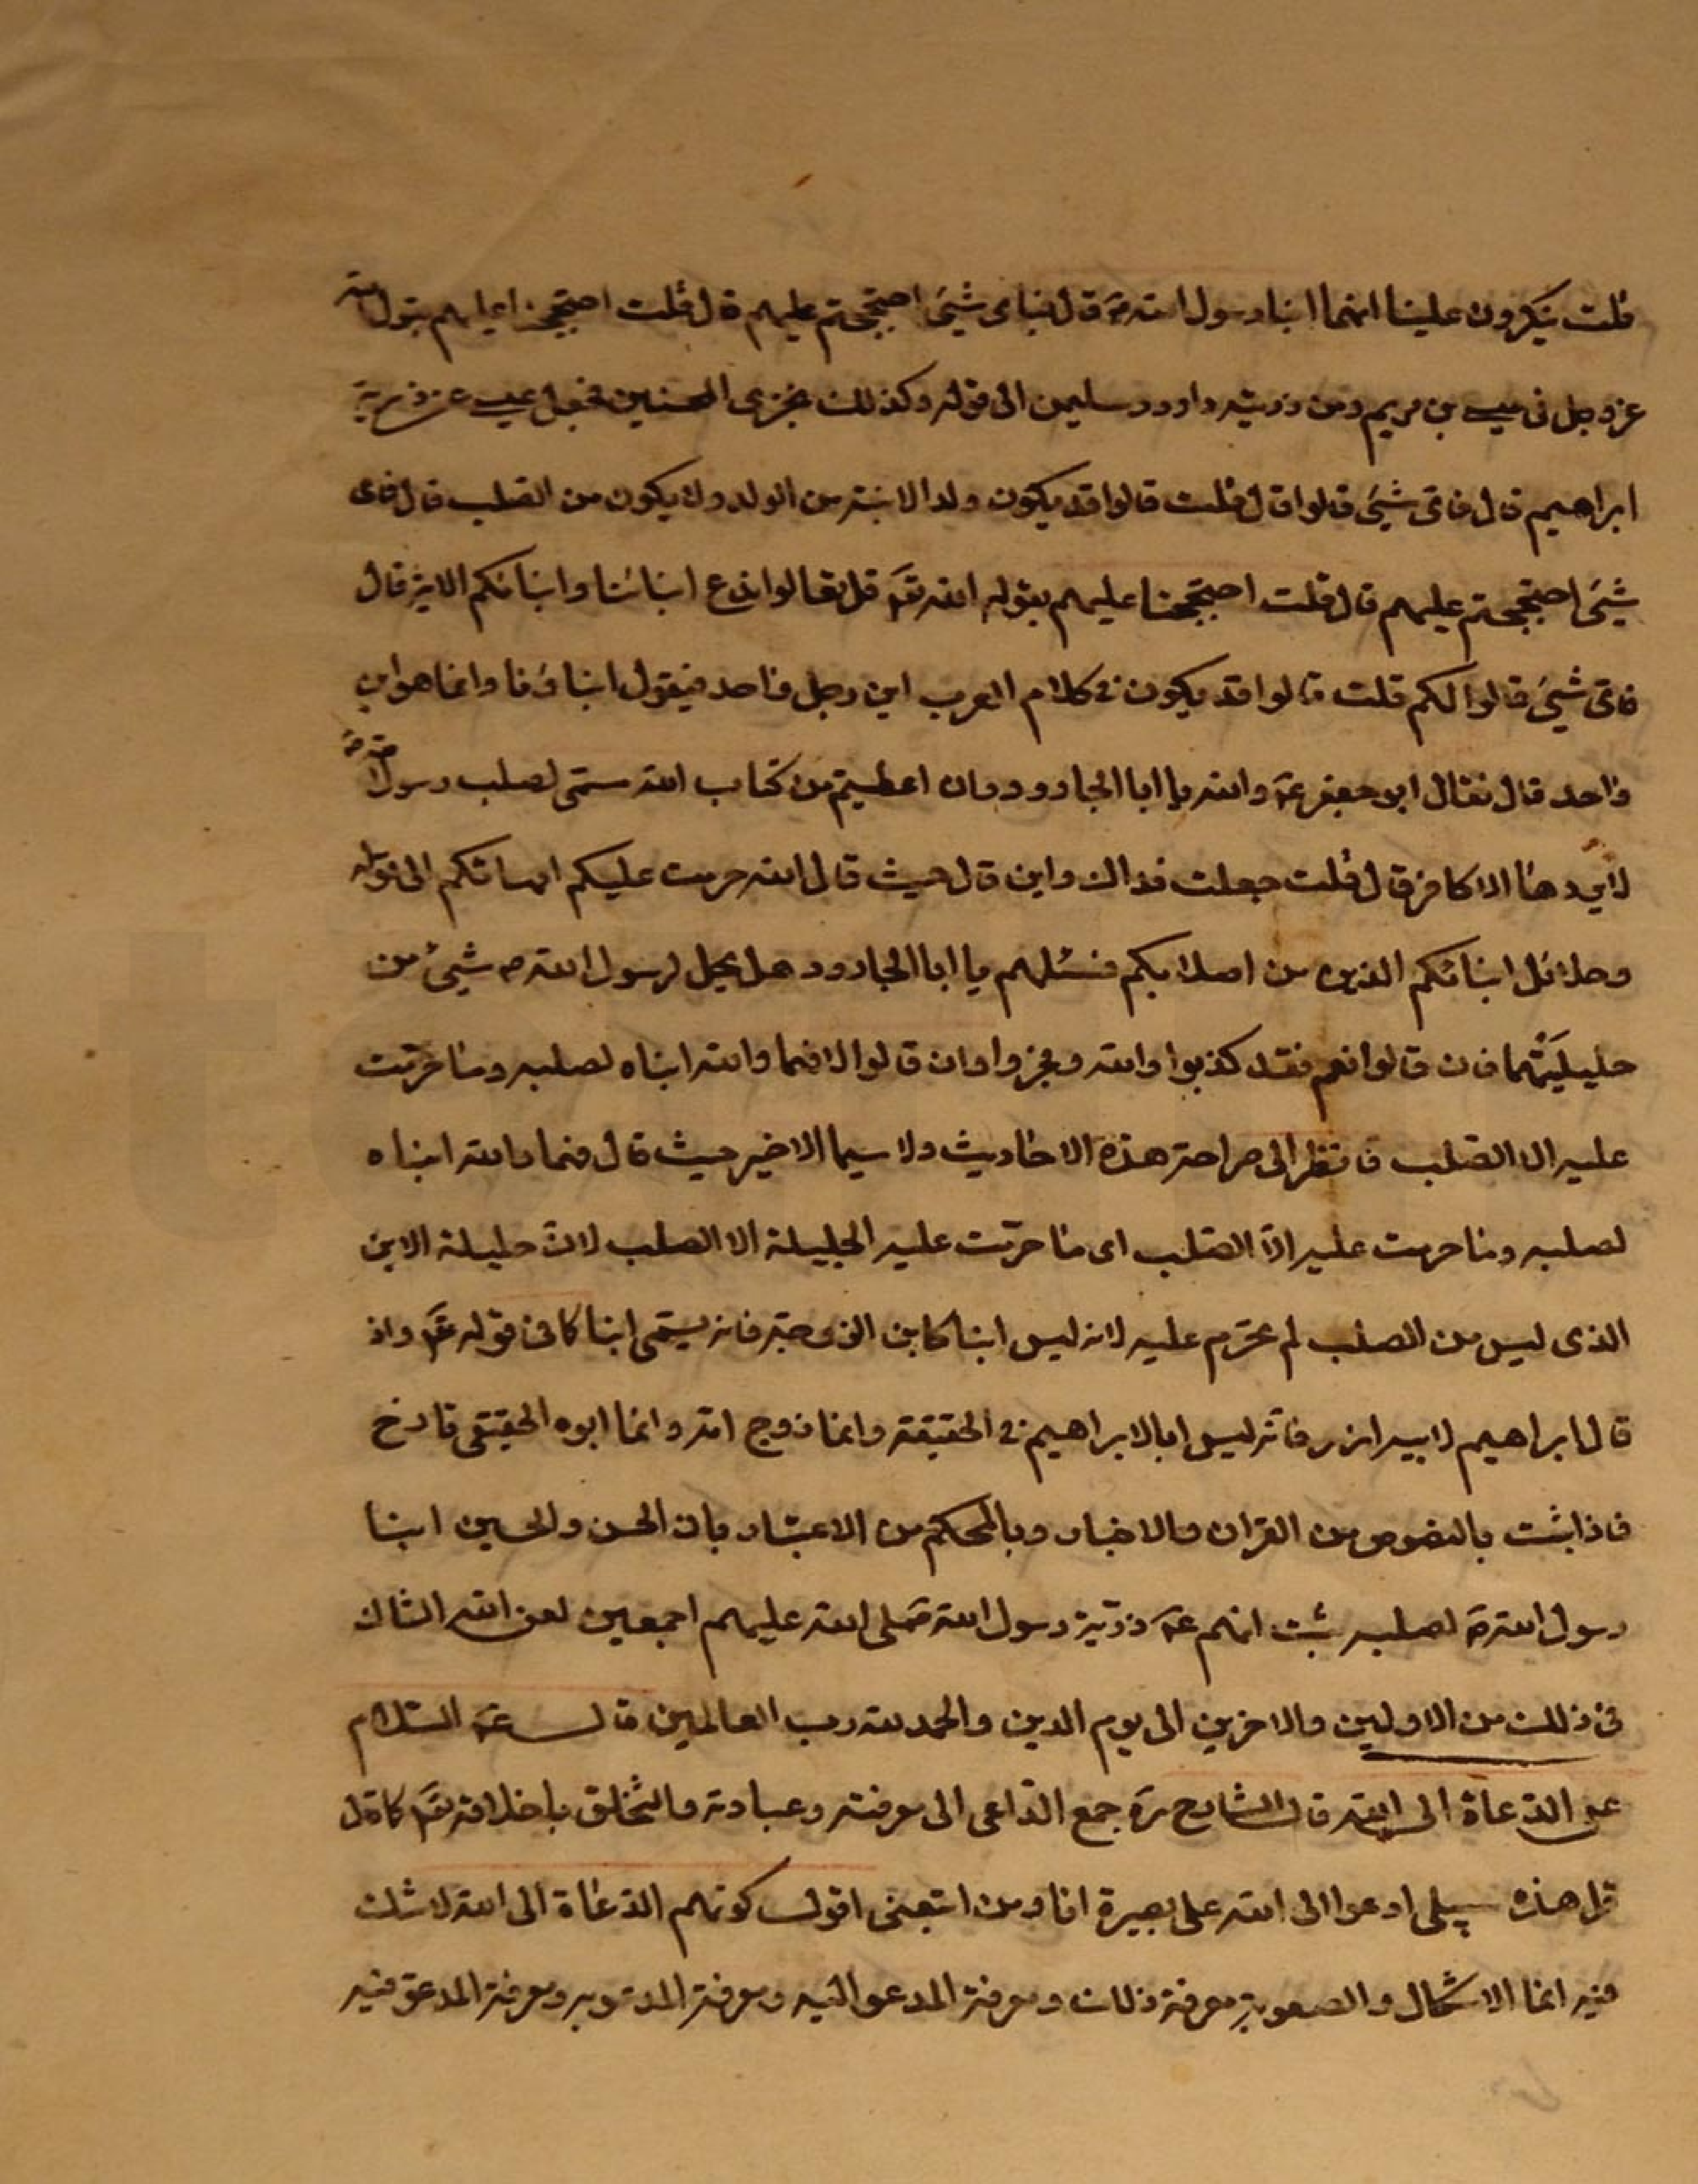 قلت ينكرون علينا انهما ابنا رسول الله ص قال فباى شيئ احتججتم عليهم قال قلت احتججنا عليهم بقول الله
عز وجل فى عيسى بن مريم ومن ذريته داود وسليمن الى قوله وكذلك نجزى المحسنين فجعل عيسى من ذرية
ابراهيم قال فاى شيئ قالوا قال قلت قالوا قد يكون ولد الابنة من الولد ولا يكون من الصلب قال فاى
شيئ احتججتم عليهم قال قلت احتججنا عليهم بقوله الله تع قل تعالوا ندع ابنائنا وابنائكم الاية قال
فاى شيئ قالوا لكم قلت قالوا قد يكون فى كلام العرب ابن رجل واحد فيقول ابناؤنا وانما هو ابن
واحد قال فقال ابو جعفر ع والله يا ابا الجارود اعطيتم من كتاب الله ستمى لصلب رسول الله ص
لايردها الا كافر قال قلت جعلت فداك واين قال حيث قال الله حرمت عليكم امهاتكم الى قوله
وحلائل ابنائكم الذين من اصلابكم فسئلهم يا ابا الجارود هل يحل لرسول الله ص شيئ من
حليلتهما فان قالوا نعم فقد كذبوا والله وفجروا وان قالوا لا فهما والله ابناه لصلبه وما حرمت
عليه الا الصلب فانظر الى صراحة هذه الاحاديث ولا سيما الاخير حيث قال فهما والله ابناه
لصلبه وما حرمت عليه الا الصلب اى ما حرمت عليه الحليلة الا الصلب لان حليلة الابن
الذى ليس من الصلب لم تحرم عليه لانه ليس ابنا كابن الزوجة فانه يسمى ابنا كما فى قوله تع واذ
قال ابراهيم لابيه ازر فانه ليس ابا لابراهيم فى الحقيقة وانما زوج امه وانما ابوه الحقيقى تارخ
فاذا ثبت بالنصوص من القران والاخبار وبالمحكم من الاعتبار بان الحسن والحسين ابنا
رسول الله ص لصلبه ثبت انهم ع ذرية رسول الله صلى الله عليهم اجمعين لعن الله الشاك
فى ذلك من الاولين والاخرين الى يوم الدين والحمد لله رب العالمين قال ع السلام
على الدعاة الى الله قال الشارح ره جمع الداعى الى معرفته وعبادته والتخلق باخلاقه تع كما قال
قل هذه سبيلى ادعوا الى الله على بصيرة انا ومن اتبعنى اقول كونهم الدعاة الى الله لا شك
فيه انما الاشكال والصعوبة معرفة ذلك ومعرفة المدعو اليه ومعرفة المدعو به ومعرفة المدعو فيه